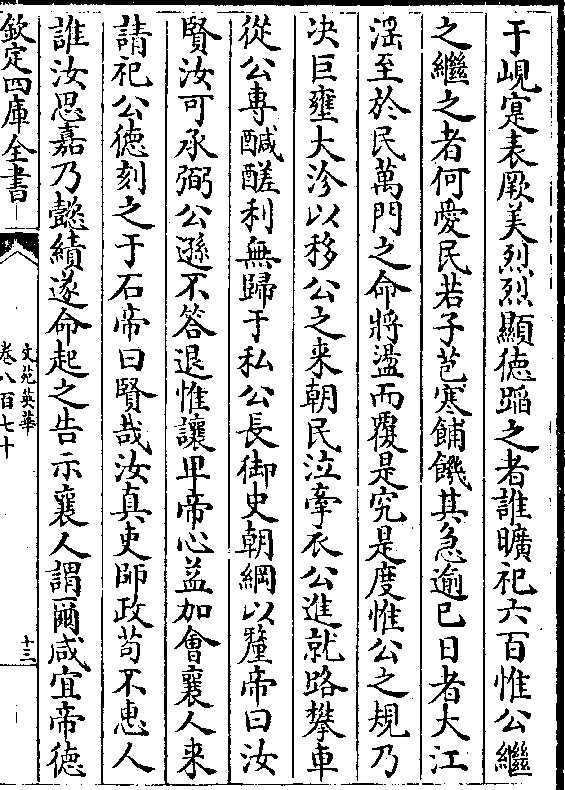 于峴寔表厥美烈烈顯德蹈之者誰曠祀六百惟公繼
之繼之者何愛民若子苞寒餔饑其急逾已日者大江
滛至於民萬門之命將溘而覆是究是度惟公之規乃
决巨壅大沴以移公之来朝民泣牽衣公進就路攀車
從公專鹹醝利無歸于私公長御史朝綱以釐帝曰汝
賢汝可承弼公遜不答退惟讓卑帝心益加會襄人来
請祀公德刻之于石帝曰賢哉汝真吏師政苟不惠人
誰汝思嘉乃懿績遂命起之告示襄人謂爾咸宜帝德
欽定四庫全書
文苑英華
卷八百七十
十三